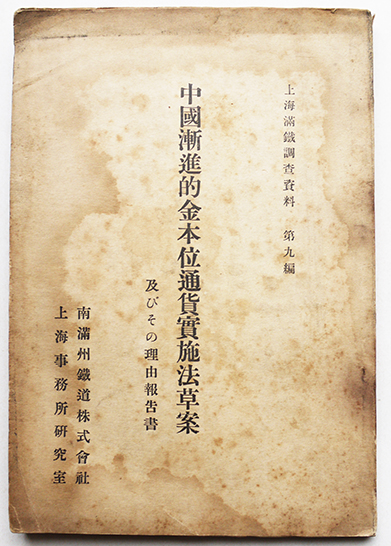 上海滿鐵調查資料　第九編
中國漸進的金本位通貨實施法草案
及びその理由報告書
南滿州鐵道株式會社
上海事務所研究室